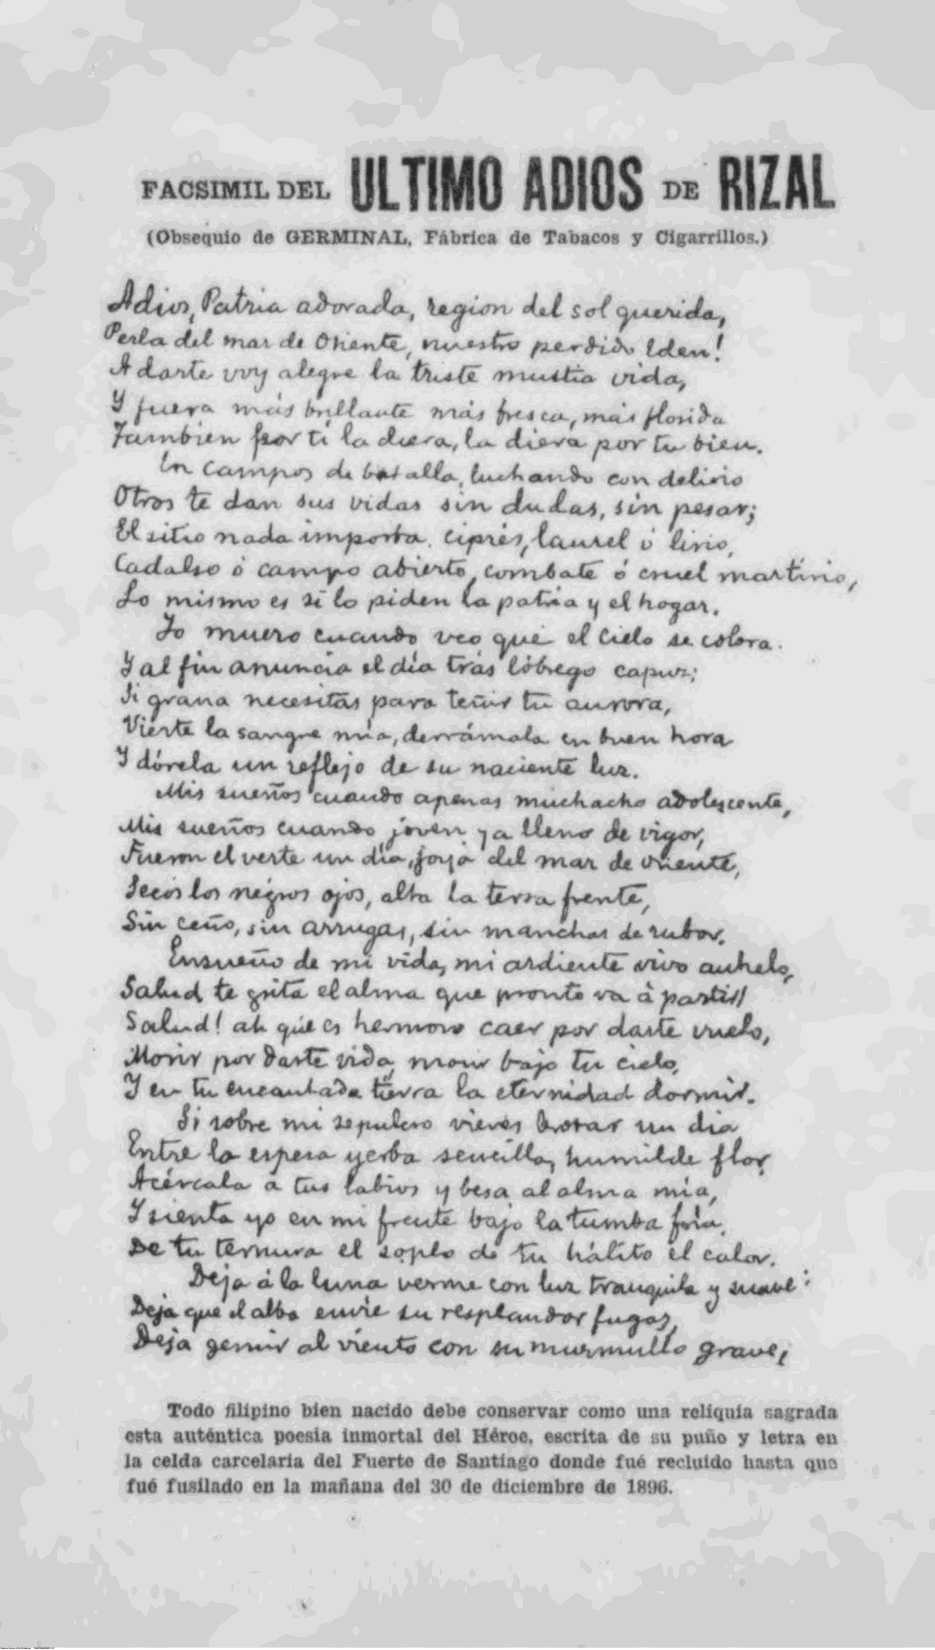 FACSIMIL DEL ULTIMO ADIOS DE RIZAL
(Obsequio de GERMINAL, Fábrica de Tabacos y Cigarrillos.)
Adios, Patria adorada, region del sol querida,
Perla del mar de Oriente, nuestro perdido Eden!
A darte voy alegre la triste mustia vida,
Y fuera más brillante más fresca, más florida
Tambien por ti la diera, la diera por tu bien.
En campos de batalla, luchando con delirio
Otros te dan sus vidas sin dudas, sin pesar;
El sitio nada importa, ciprés, laurel ó lirio,
Cadalso ó campo abierto, combate ó cruel martirio,
Lo mismo es si lo piden la patria y el hogar.
Yo muero cuando veo que el cielo se colora.
Y al fin anuncia el día trás lóbrego capuz;
Si grana necesitas para teñir tu aurora,
Vierte la sangre mía, derrámala en buen hora
Y dórela un reflejo de su naciente luz.
Mis sueños cuando apenas muchacho adolescente,
Mis sueños cuando joven ya lleno de vigor,
Fueron el verte un día, joya del mar de oriente,
Secos los negros ojos, alta la tersa frente,
Sin ceño, sin arrugas, sin manchas de rubor.
Ensueño de mi vida, mi ardiente vivo anhelo,
Salud te grita el alma que pronto va á partir!
Salud! ah que es hermoso caer por darte vuelo,
Morir por darte vida, morir bajo tu cielo,
Y en tu encantada tierra la eternidad dormir.
Si sobre mi sepulcro vieres brotar un dia
Entre la espesa yerba sencilla, humilde flor,
Acércala a tus labios y besa al alma mía,
Y sienta yo en mi frente bajo la tumba fría,
De tu ternura el soplo de tu hálito el calor.
Deja á la luna verme con luz tranquila y suave:
Deja que el alba envíe su resplandor fugaz,
Deja gemir al viento con su murmullo grave,
Todo filipino bien nacido debe conservar como una reliquia sagrada
esta auténtica poesia inmortal del Héroe, escrita de su puño y letra en
la celda carcelaria del Fuerte de Santiago donde fué recluido hasta que
fué fusilado en la mañana del 30 de diciembre de 1896.